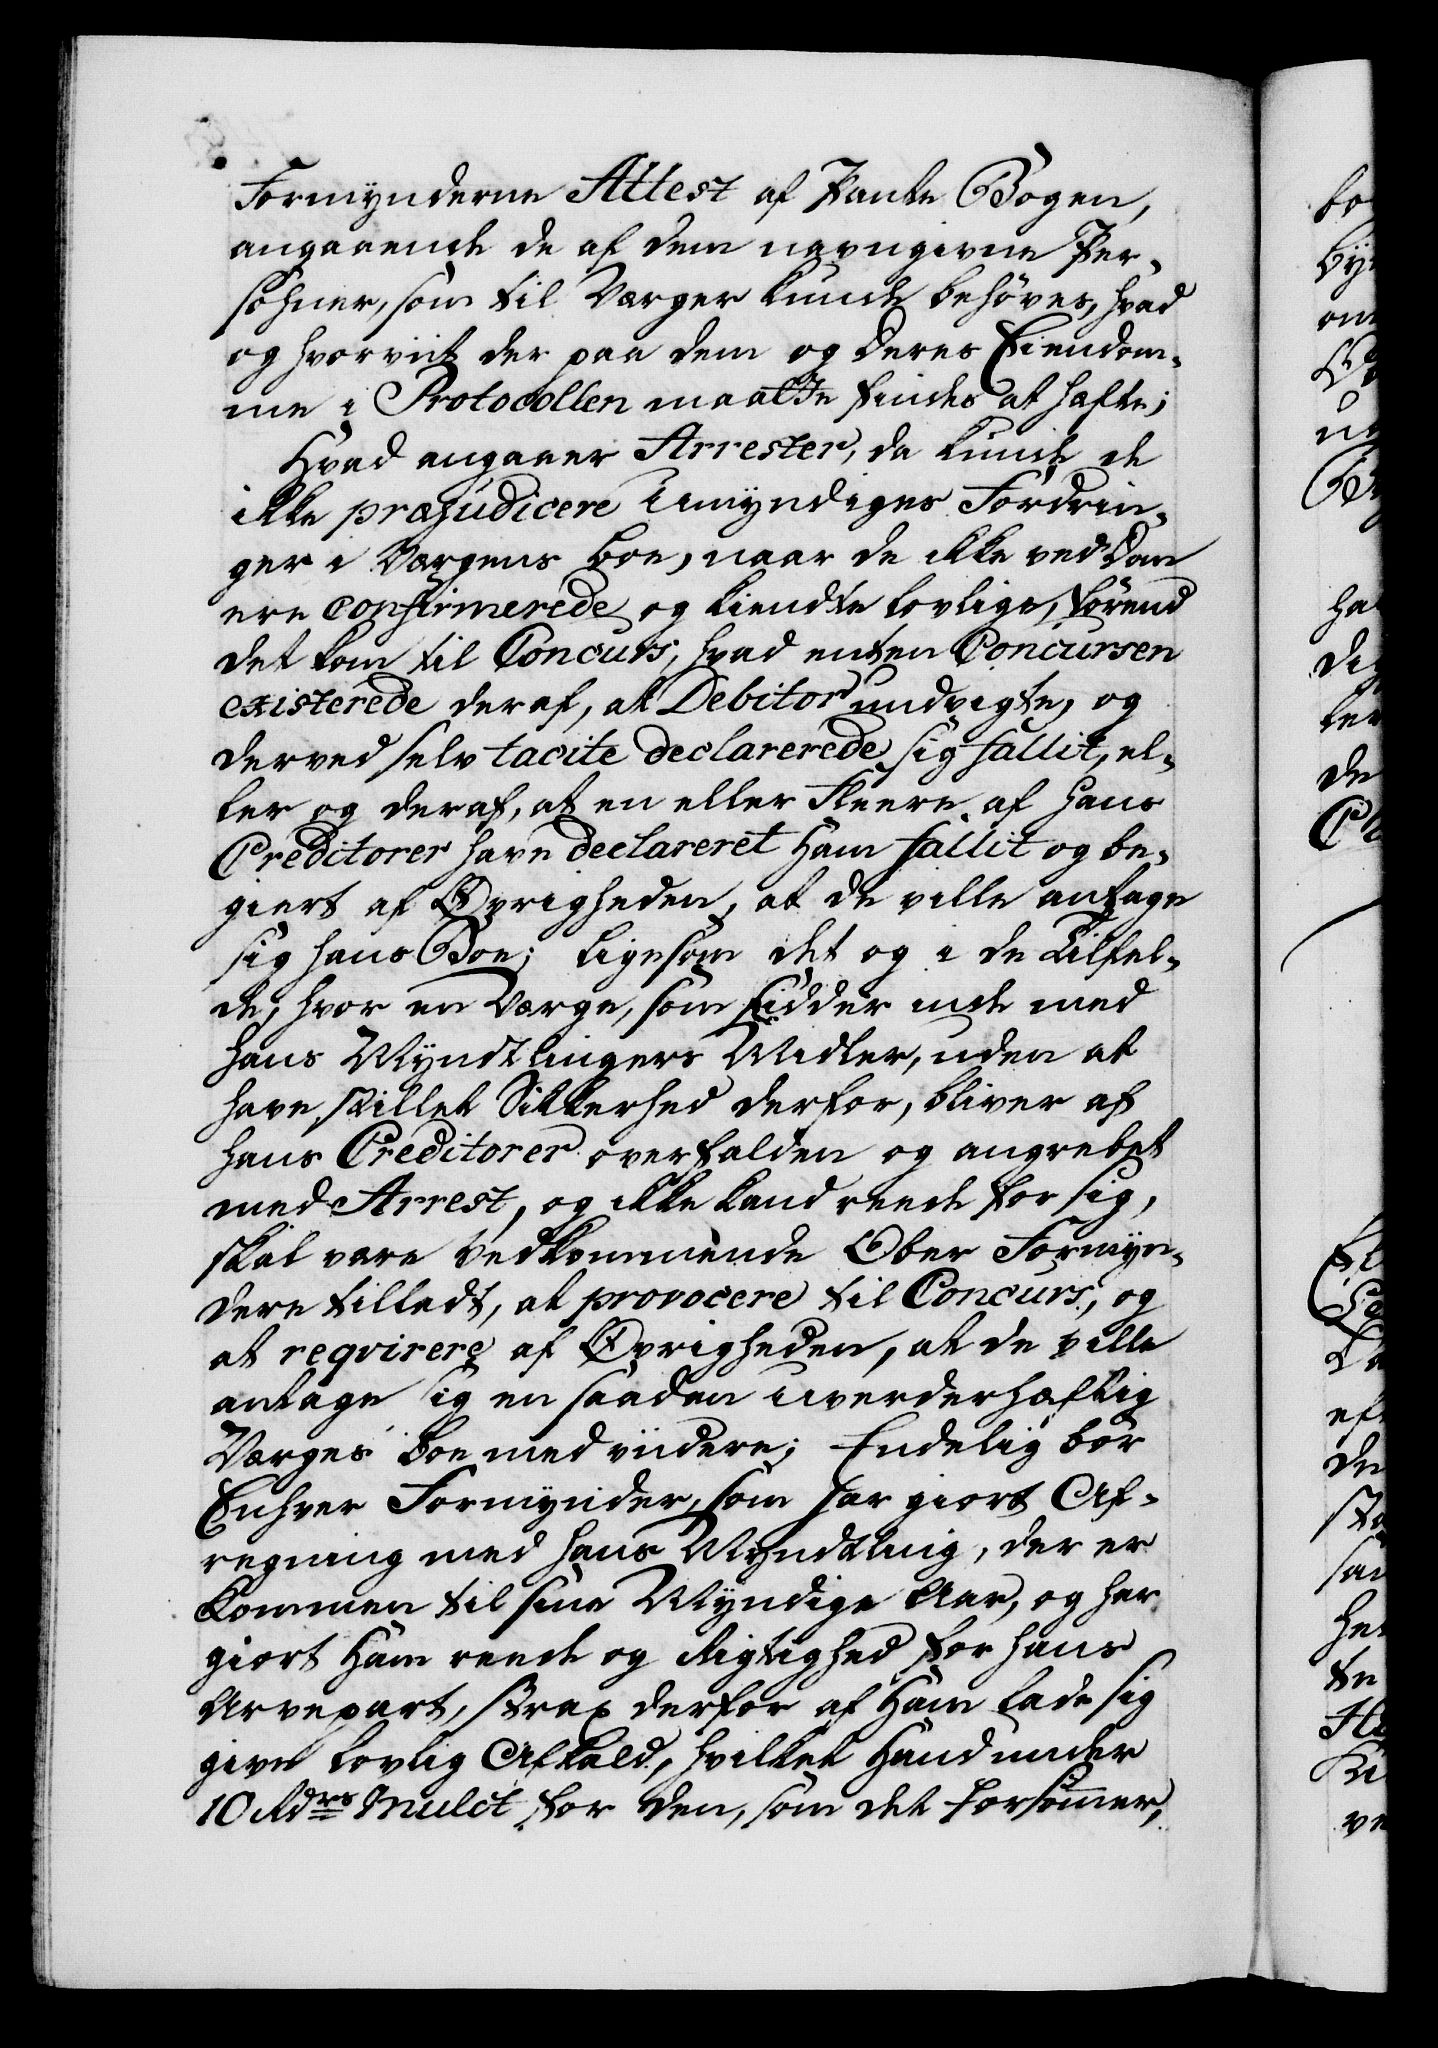 Formynderne Attest af Pante Bogen,
angaaende de af dem navngivne Per-
sohner, som til Værger kunde behöves, hvad
og hvorvit der paa dem og deres Eiendom-
me i Protocollen maatte findes at hæfte;
Hvad angaaer Arrester, da kunde de
ikke præjudicere Umyndiges Fordrin-
ger i Værgens Boe, naar de ikke ved Dom
ere confirmerede og kiendte lovlige, förend
det kom til Concurs, hvad enten Concursen
existerede deraf, at Debitor undvigte, og
derved selv tacite declarerede sig fallit, el-
ler og deraf, at en eller Fleere af hans
Creditorer have declareret Ham fallit og be-
giert af Øvrigheden, at de ville antage
sig hans Boe; ligesom det og i de Tilfel-
de, hvor en Værge, som sidder inde med
hans Myndtlingers Midler, uden at
have stillet Sikkerhed derfor, bliver af
hans Creditorer overfalden og angrebet
med Arrest, og ikke kand reede for sig,
skal være vedkommende Ober Formyn-
dere tilladt, at provocere til Concurs, og
at reqvirere af Øvrigheden, at de ville
antage sig en saadan uverderhæftig
Værges Boe med viidere; Endelig bör
Enhver Formynder, som har giort Af-
regning med hans Myndtling, der er
kommen til sine Myndige Aar, og har
giort Ham reede og Rigtighed for hans
Arvepart, strax derfor af Ham lade sig
give lovlig Afkald, hvilket Hand under
10 Rdrs Mulct for den, som det forsömmer,